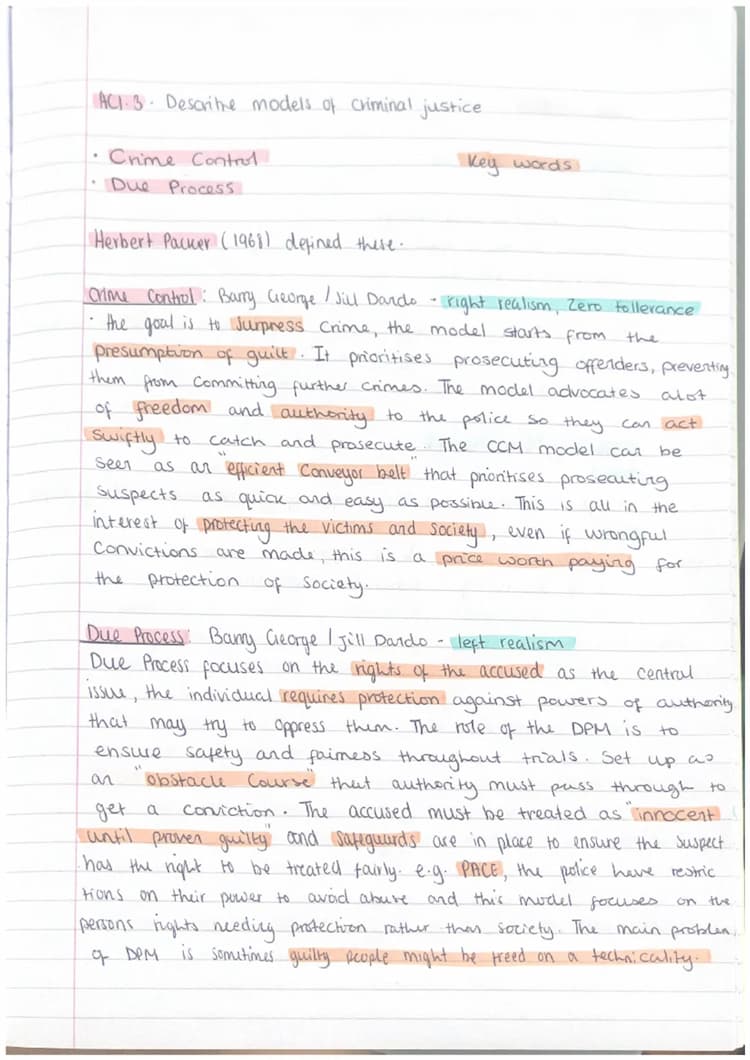 AC1.3 - Describe models of criminal justice
· Crime Control
Key words
· Due Process
Herbert Packer (1968) defined these.
Crime Control: Barry George / Jill Dando - right realism, Zero tollerance
· the goal is to surpress crime, the model starts from the
presumption of guilt. It prioritises prosecuting offenders, preventing
them from committing further crimes. The model advocates alot
of freedom and authority to the police so they can act
swiftly to catch and prosecute. The CCM model can be
seen as an "efficient conveyor belt" that prioritises prosecuting
suspects as quick and easy as possible. This is all in the
interest of protecting the victims and society, even if wrongful
convictions are made, this is a price worth paying for
the protection of society.
Due Process: Barry George / Jill Dando - left realism
Due Process focuses on the rights of the accused as the central
issue, the individual requires protection against powers of authority
that may try to oppress them. The role of the DPM is to
ensure safety and fairness throughout trials. Set up as
an "obstacle course" that authority must pass through to
get a conviction. The accused must be treated as "innocent
until proven guilty" and safeguards are in place to ensure the suspect
has the right to be treated fairly. e.g. PACE, the police have restric
tions on their power to avoid abuse and this model focuses on the
persons rights needing protection rather than society. The main problem
of DPM is sometimes guilty people might be freed on a technicality.